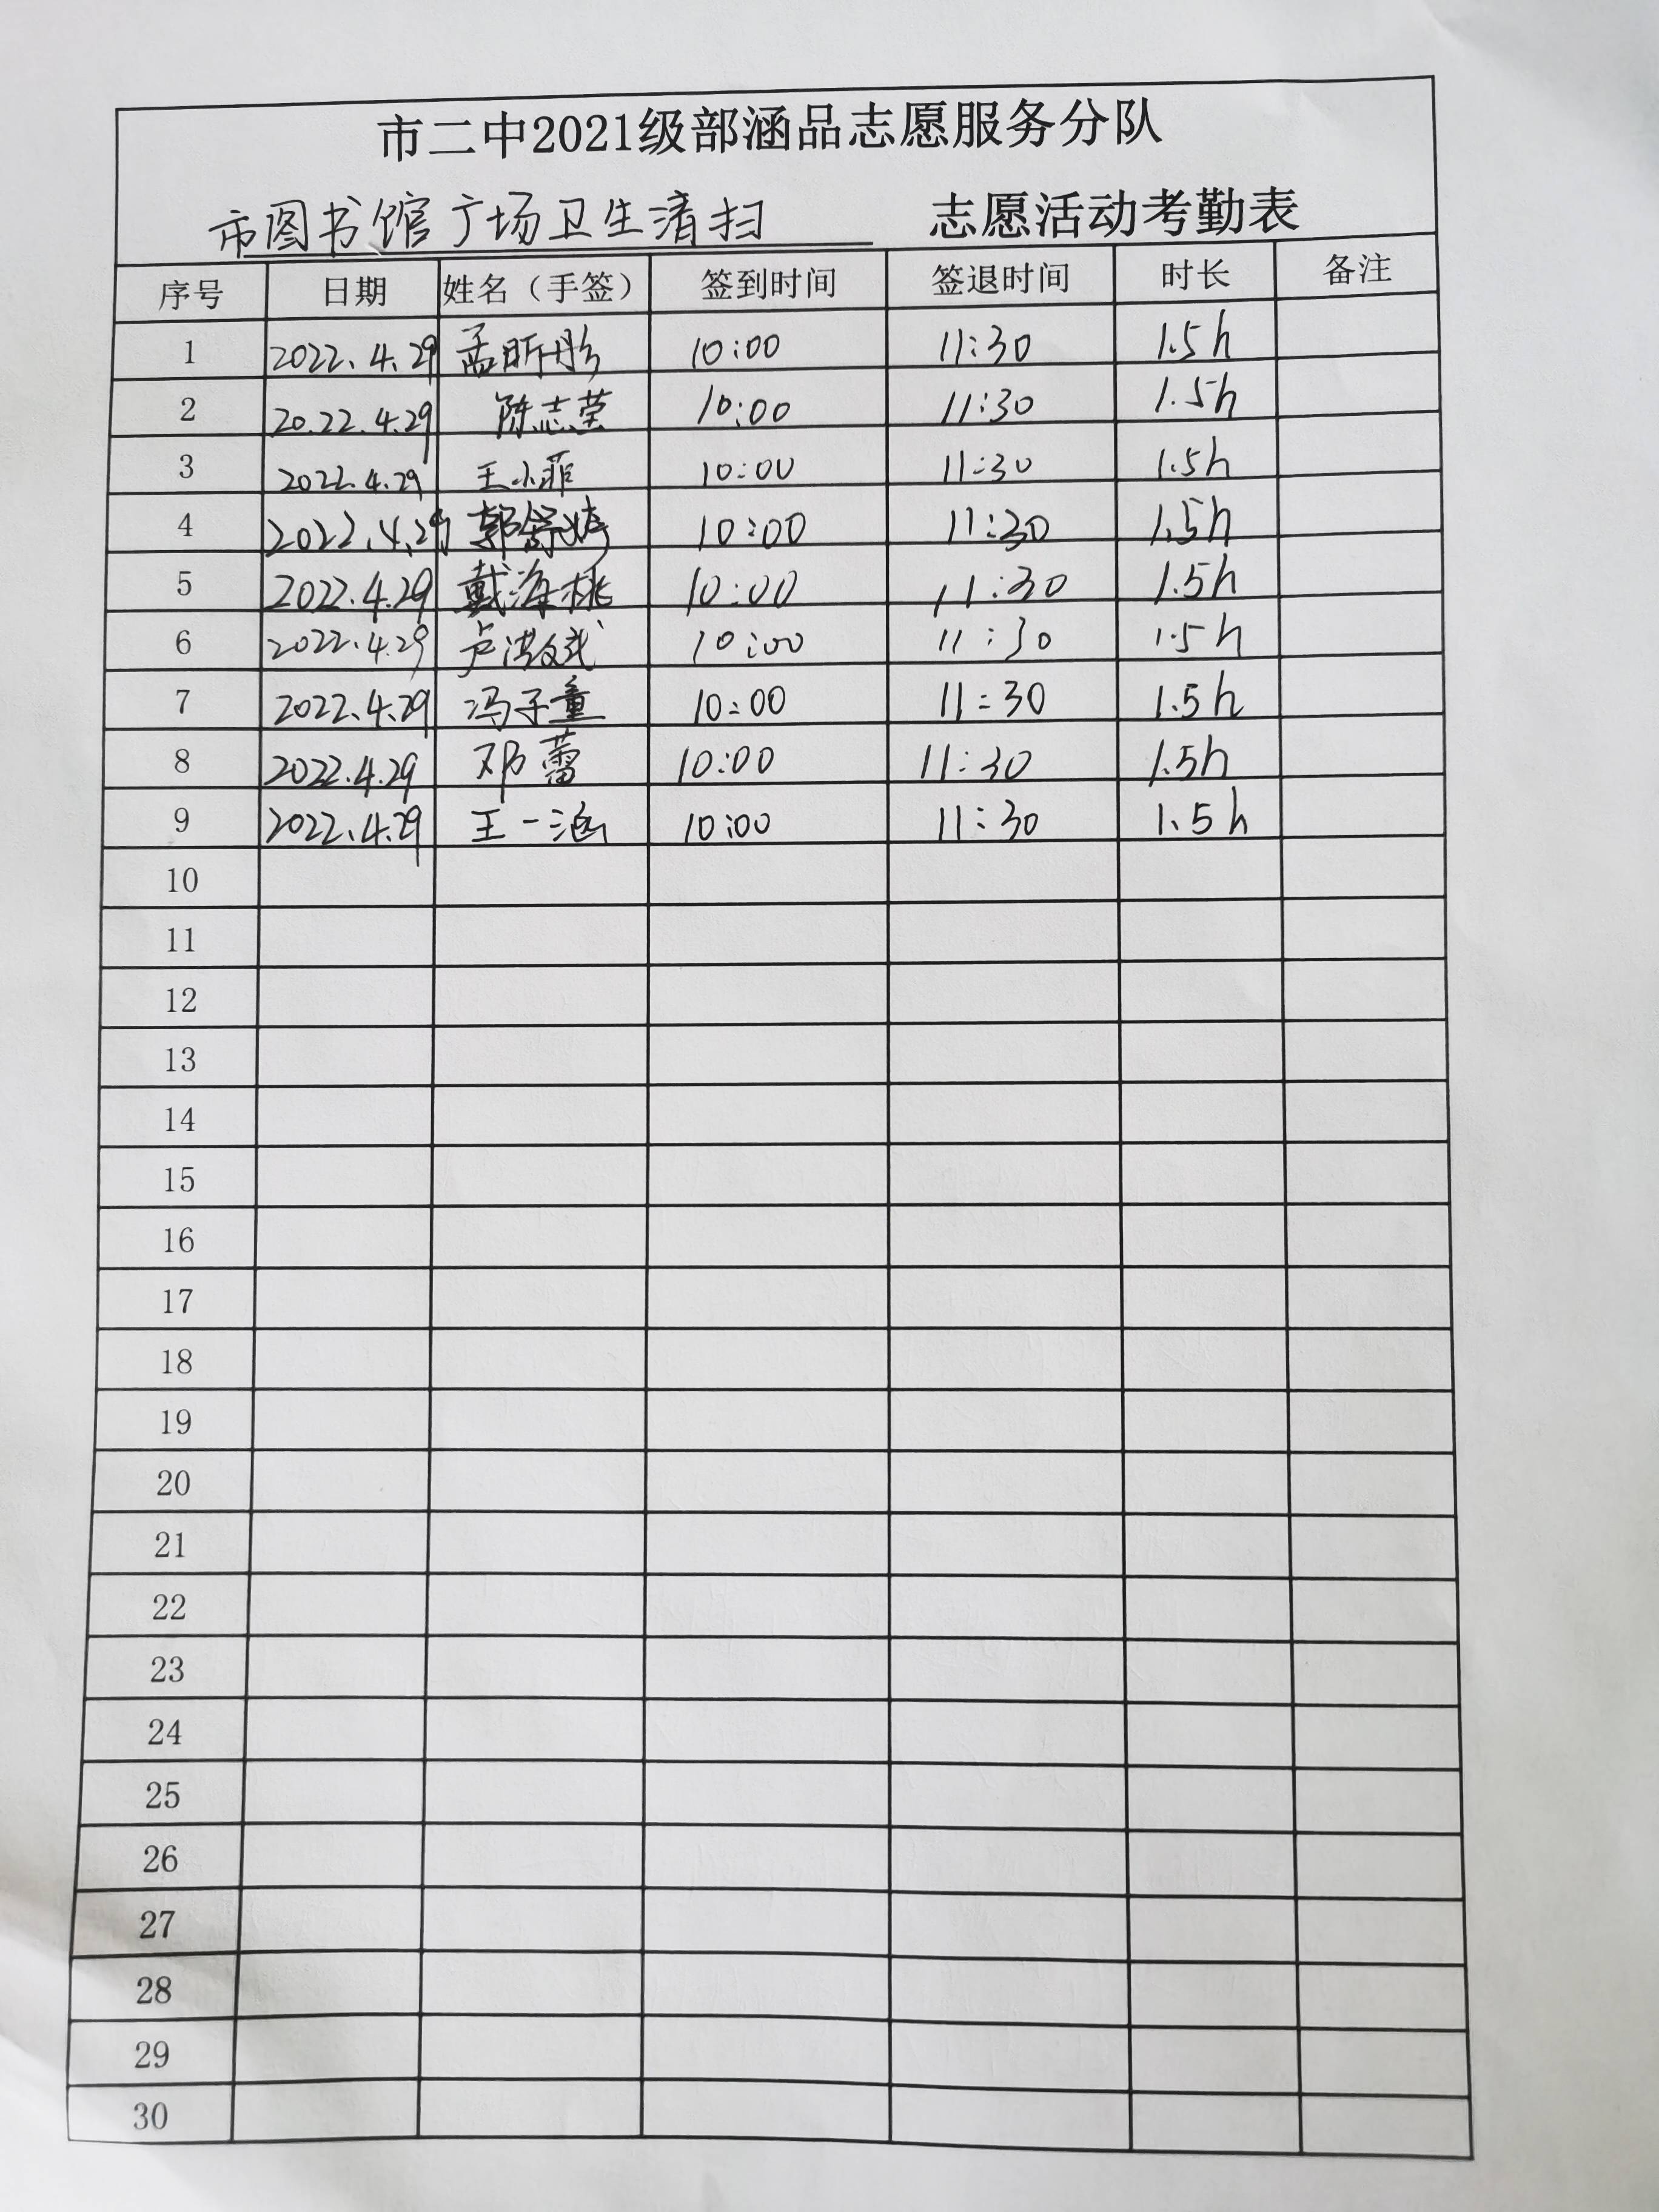 市二中2021级部涵品志愿服务分队
市图书馆广场卫生清扫 志愿活动考勤表
序号 日期 姓名（手签） 签到时间 签退时间 时长 备注
1 2022.4.29 孟昕彤 10:00 11:30 1.5h
2 2022.4.29 陈志莹 10:00 11:30 1.5h
3 2022.4.29 王小菲 10:00 11:30 1.5h
4 2022.4.29 郭舒婷 10:00 11:30 1.5h
5 2022.4.29 戴海桃 10:00 11:30 1.5h
6 2022.4.29 卢 10:00 11:30 1.5h
7 2022.4.29 冯子童 10:00 11:30 1.5h
8 2022.4.29 邓蕾 10:00 11:30 1.5h
9 2022.4.29 王一涵 10:00 11:30 1.5h
10
11
12
13
14
15
16
17
18
19
20
21
22
23
24
25
26
27
28
29
30